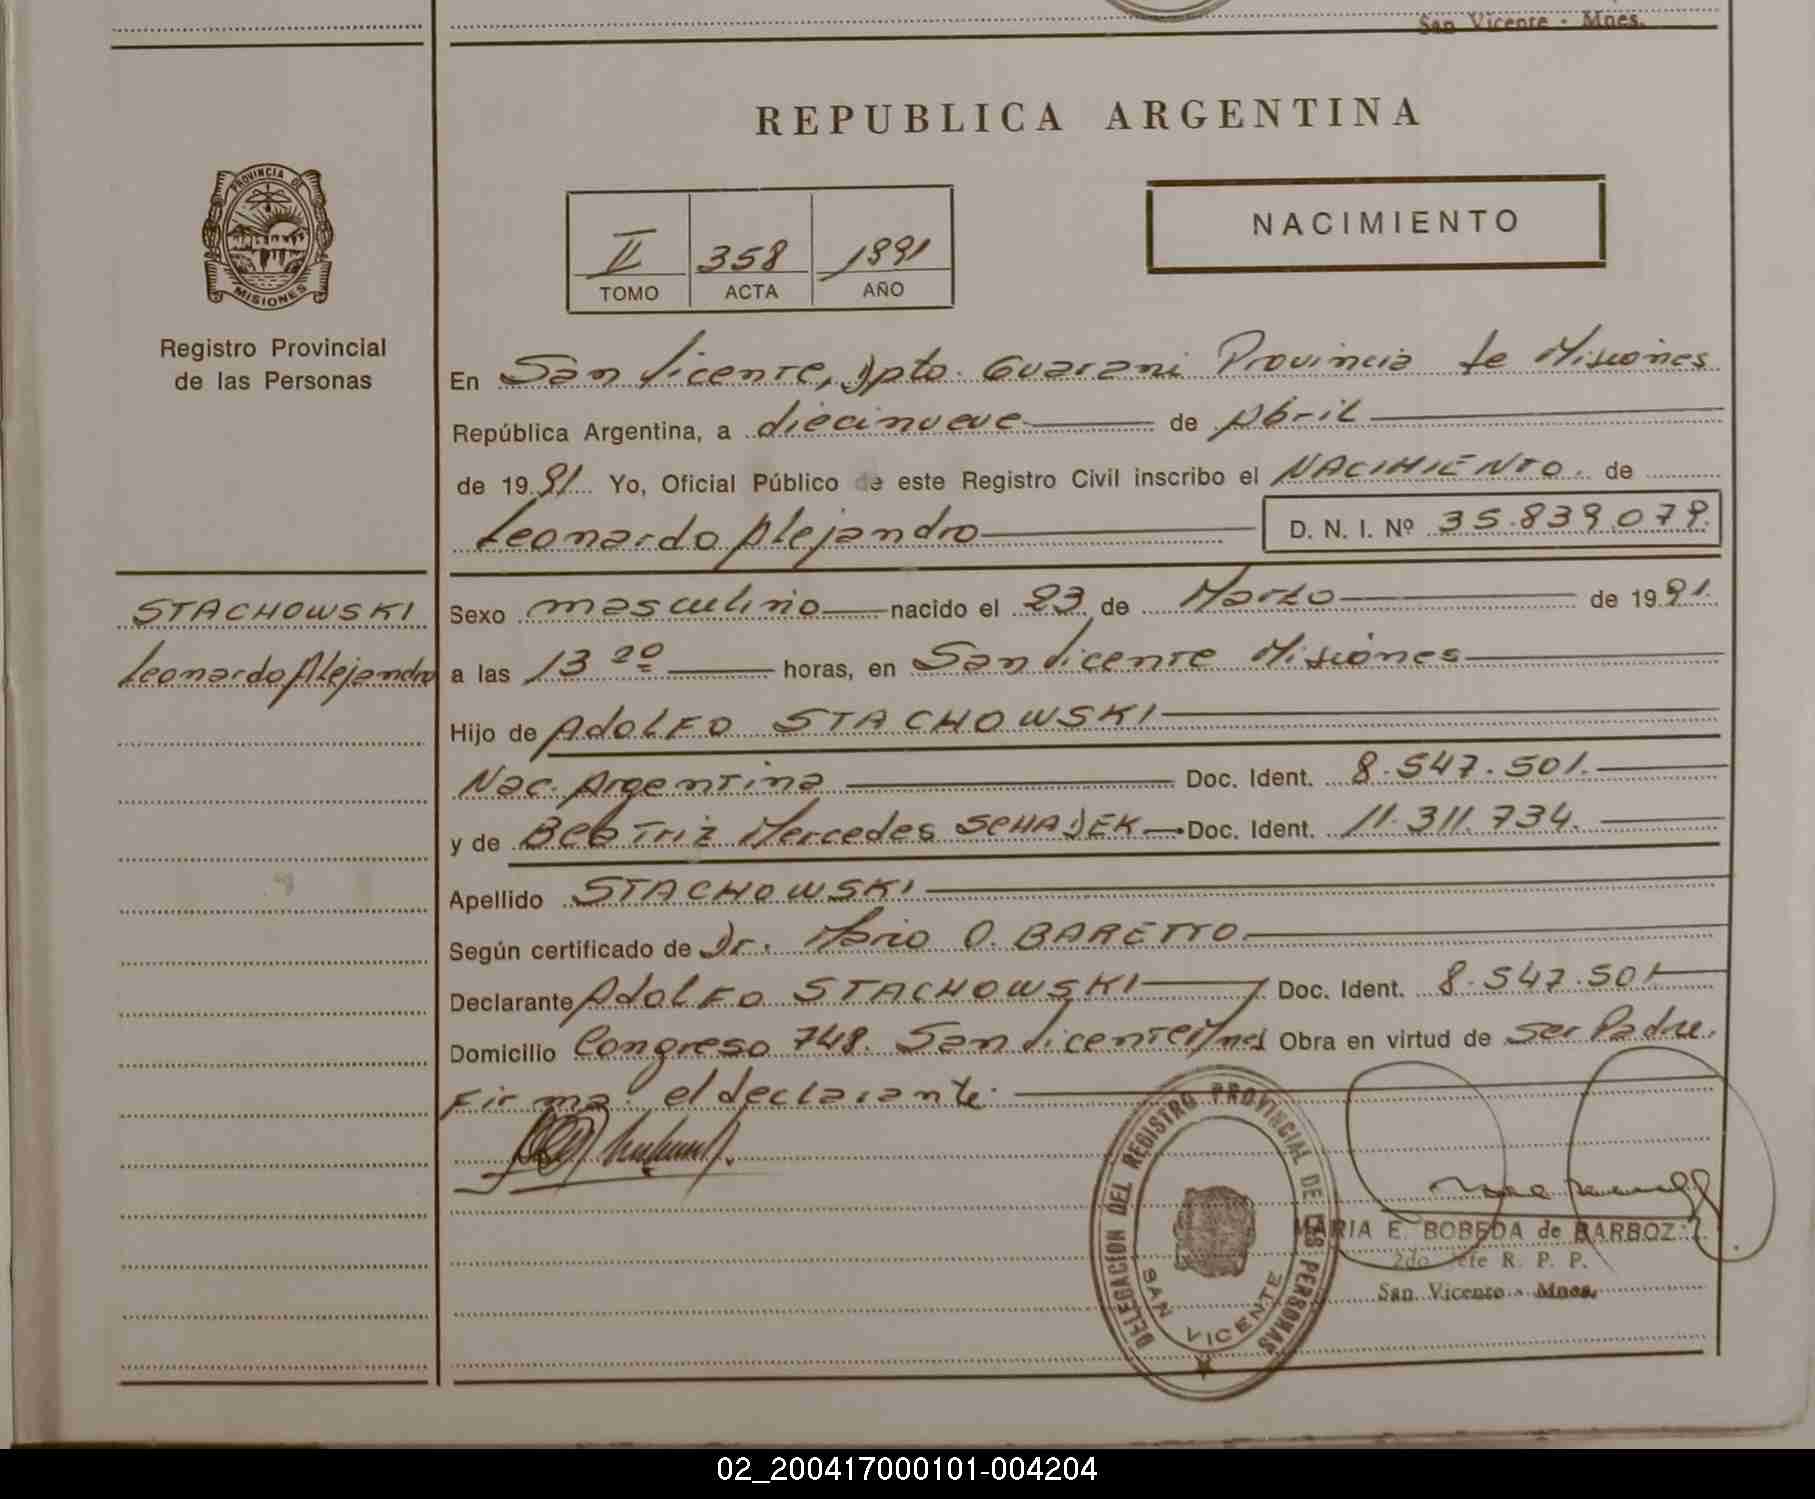 San Vicente - Mnes.
REPUBLICA ARGENTINA
PROVINCIA DE
MISIONES
Registro Provincial
de las Personas
II 358 1991
TOMO ACTA AÑO
NACIMIENTO
En San Vicente, Dpto. Guarani Provincia de Misiones
República Argentina, a diecinueve de Abril
de 1991 Yo, Oficial Público de este Registro Civil inscribo el NACIMIENTO. de
Leonardo Alejandro D. N. I. Nº 35.839.079.
STACHOWSKI
Leonardo Alejandro
Sexo masculino nacido el 23 de Marzo de 1991.
a las 13 20 horas, en San Vicente Misiones
Hijo de ADOLFO STACHOWSKI
Nac. Argentina Doc. Ident. 8.547.501.
y de Beatriz Mercedes SCHADEK Doc. Ident. 11.311.734.
Apellido STACHOWSKI
Según certificado de Dr. Mario O. BARETTO.
Declarante ADOLFO STACHOWSKI Doc. Ident. 8.547.501
Domicilio Congreso 748. San Vicente Mnes Obra en virtud de ser Padre.
Firma: el declarante.
DELEGACION DEL REGISTRO PROVINCIAL DE LAS PERSONAS
SAN VICENTE
MARIA E. BOBEDA de BARBOZA
2do Jefe R. P. P.
San Vicente - Mnes.
02_200417000101-004204